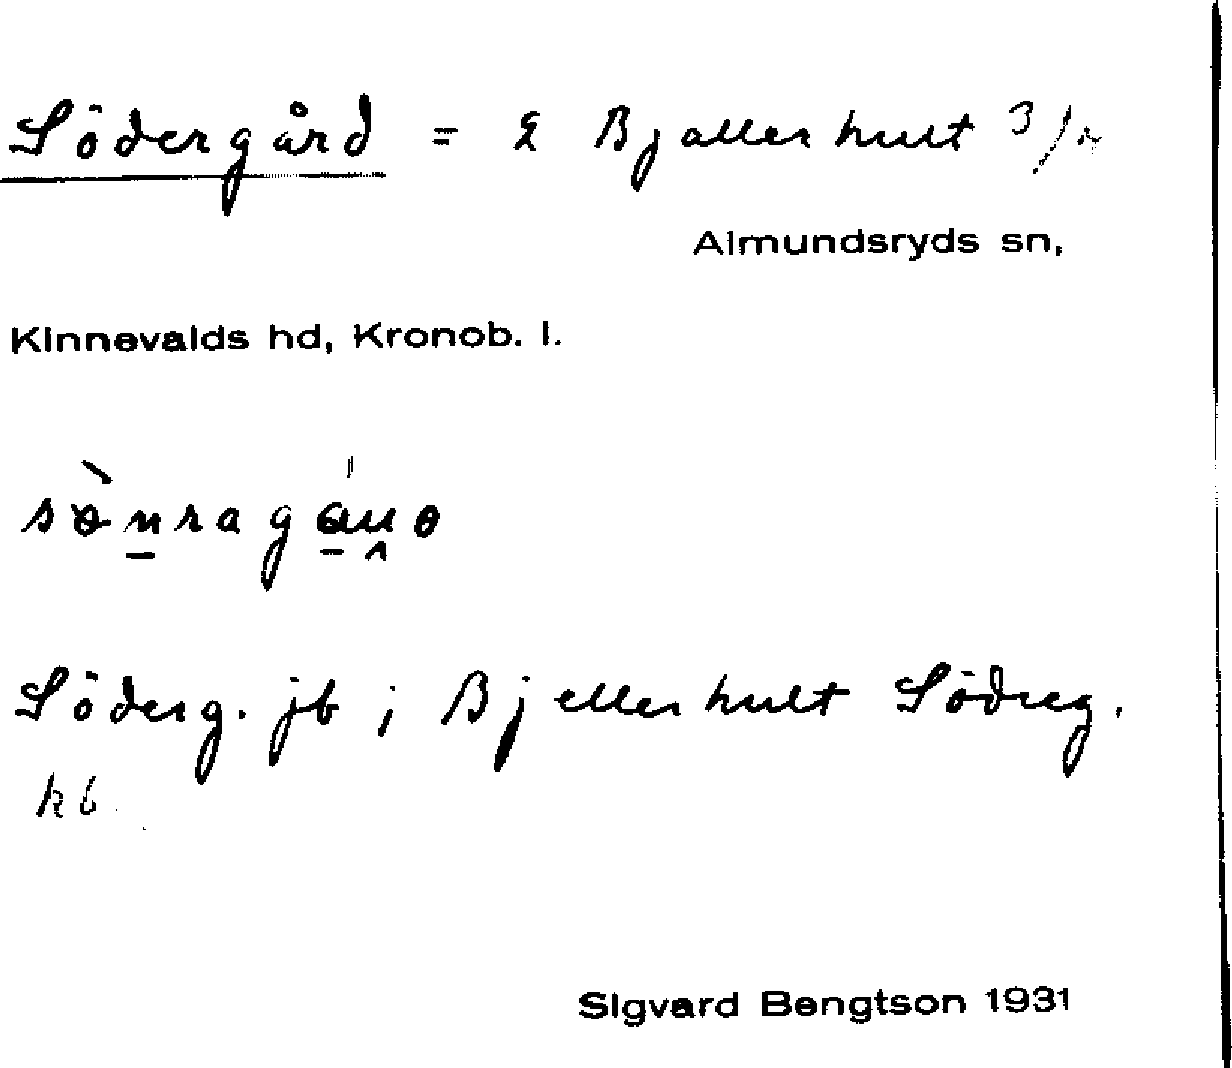 Södergård = Bjällerhult 3/
Almundsryds sn,
Kinnevalds hd, Kronob. l.
Söderg. jb ; Bjellerhult Södreg.
kb
Sigvard Bengtson 1931